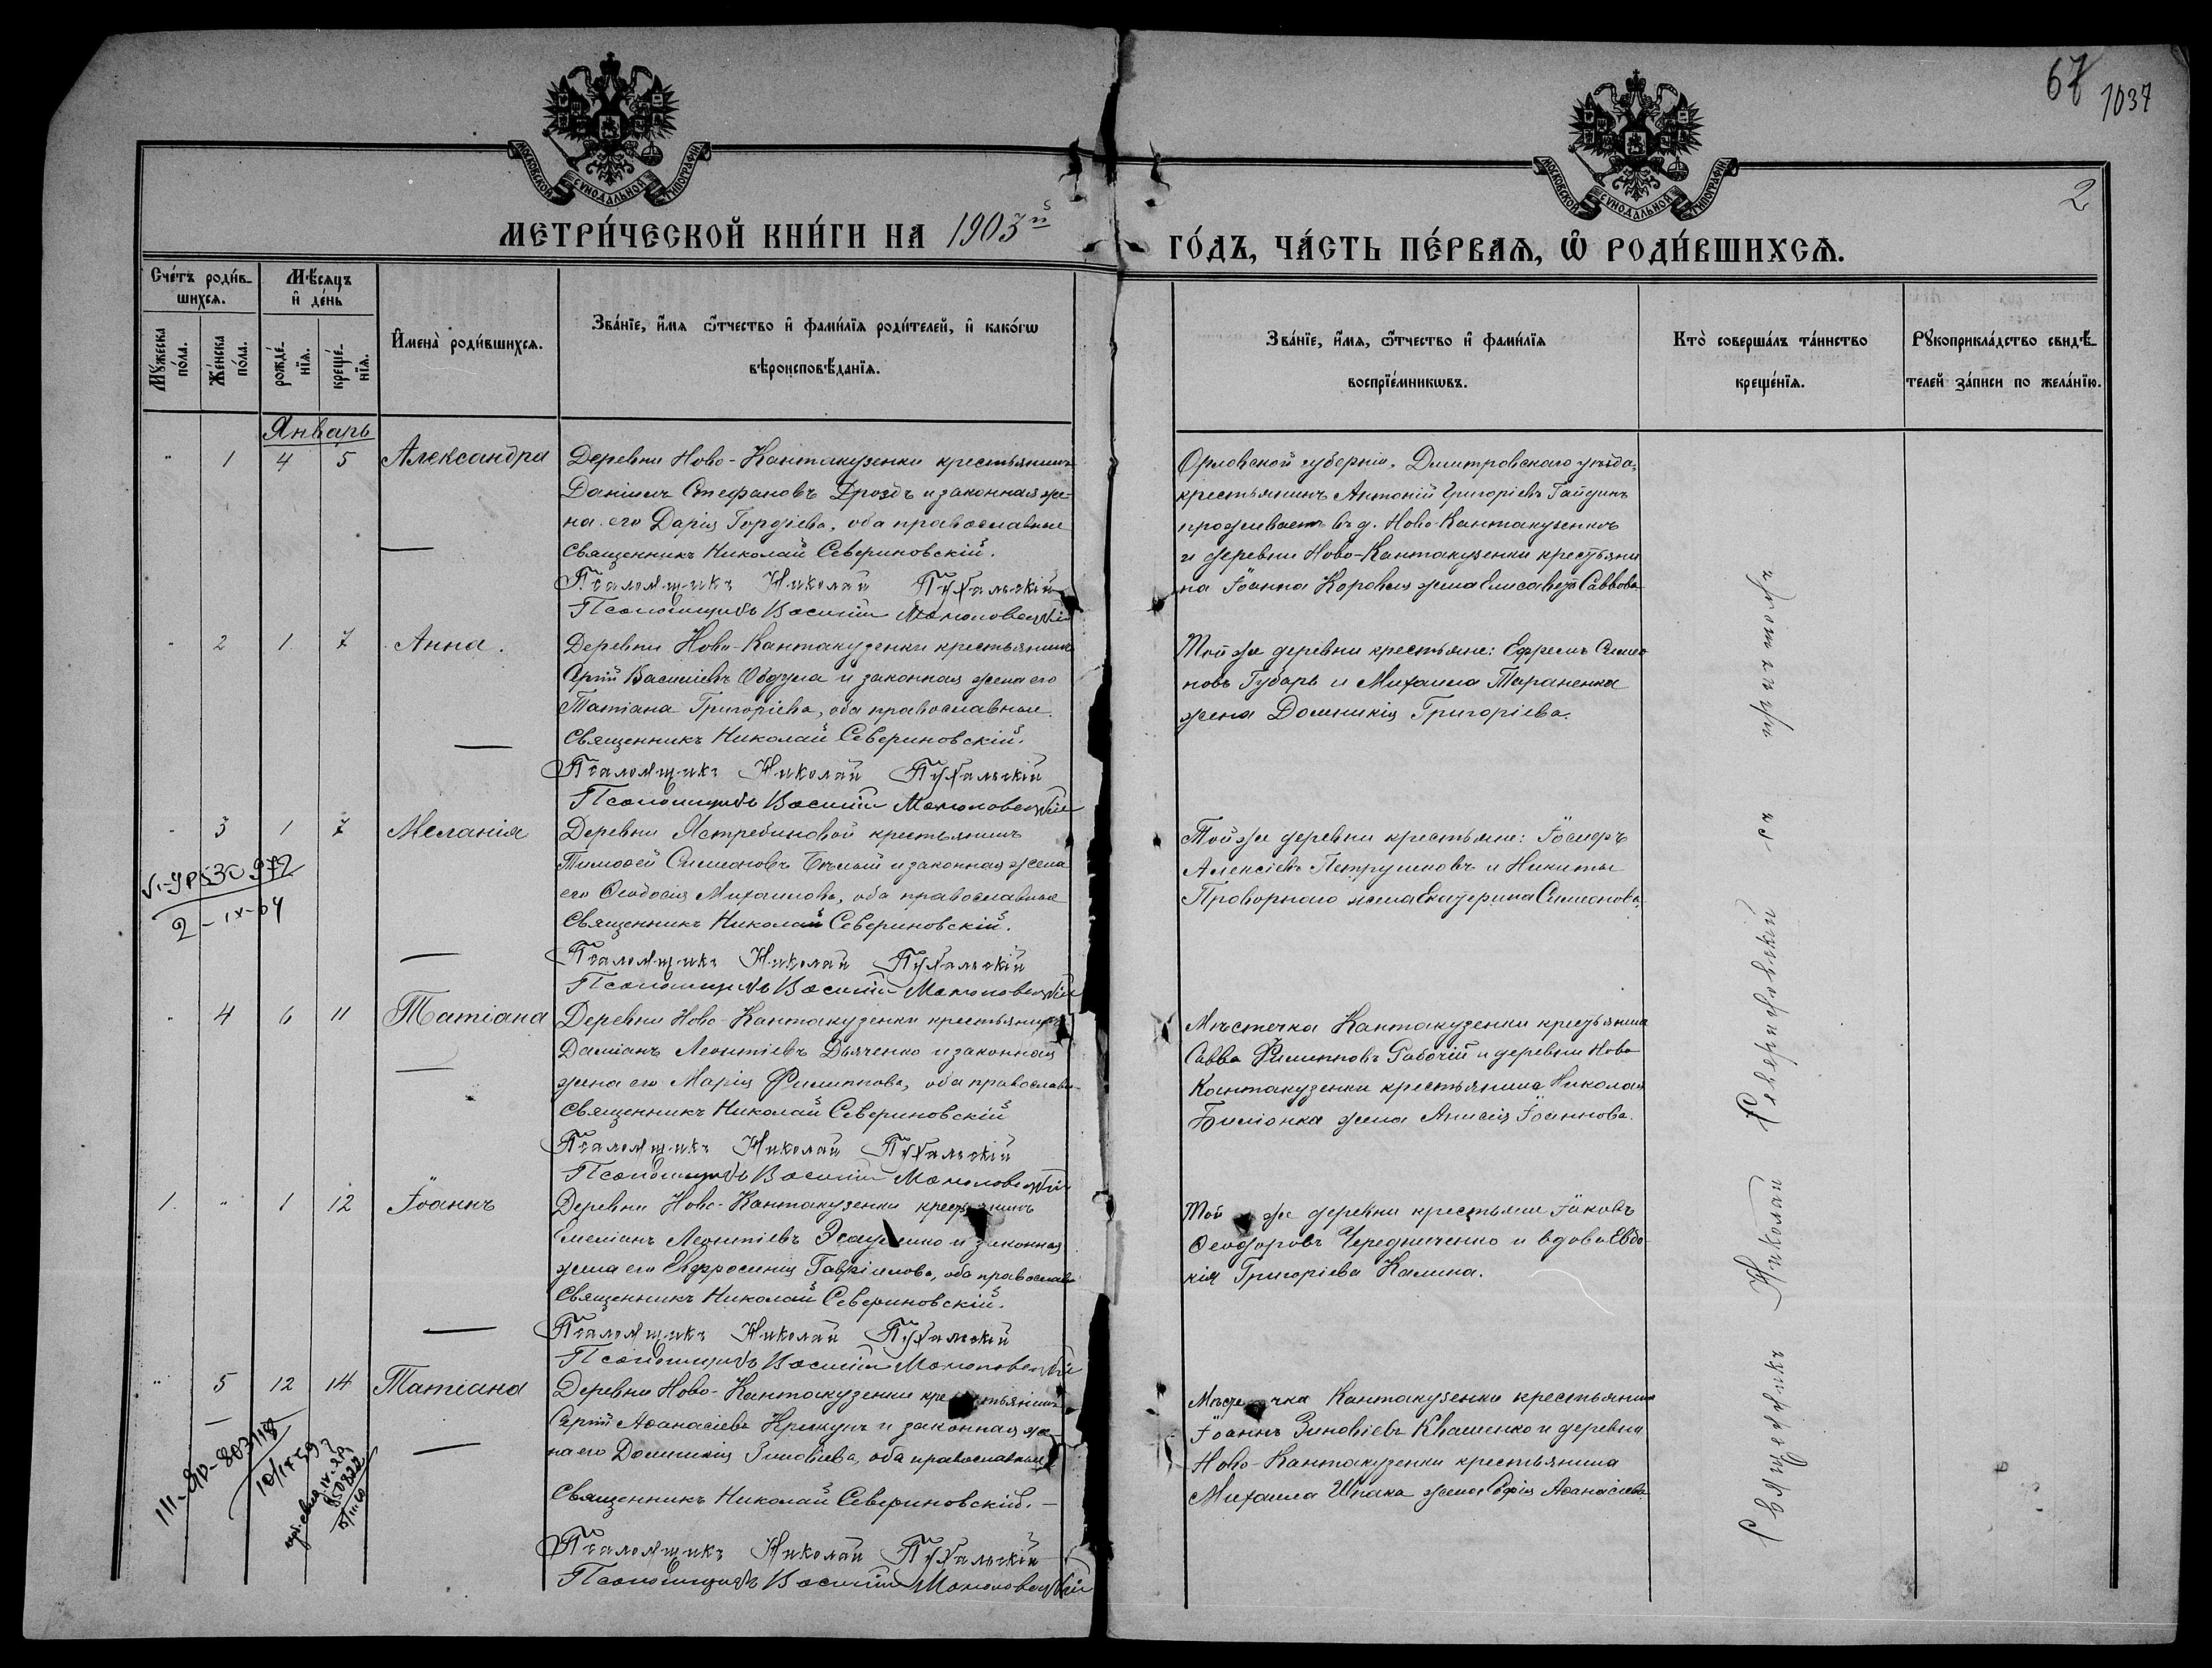 67
1037
2
МОСКОВСКОЙ СУНОДАЛЬНОЙ ТИПОГРАФІИ
МОСКОВСКОЙ СУНОДАЛЬНОЙ ТИПОГРАФІИ
МЕТРИ́ЧЕСКОЙ КНИ́ГИ НА 1903й
ГО́ДЪ, ЧА́СТЬ ПЕ́РВАЯ, Ѡ РОДИ́ВШИХСЯ.
Сче́тъ роди́в-
шихся.
Мѣ́сяцъ
и҆ де́нь
Мꙋ́жеска по́ла.
Же́нска по́ла.
рожде́-
нїя.
креще́-
нїя.
И҆мена̀ роди́вшихся.
Зва́нїе, и҆́мя ѻ҆́тчество и҆ фами́лїя роди́телей, и҆ како́гѡ
вѣроисповѣ́данїя.
Зва́нїе, и҆́мя, ѻ҆́тчество и҆ фами́лїя
воспрїе́мникѡвъ.
Кто̀ соверша́лъ та́инство
креще́нїя.
Рꙋкоприкла́дство свидѣ́-
телей за́писи по жела́нїю.
Январь
" 1 4 5 Александра
Деревни Ново-Кантакузенки крестьянинъ
Даніилъ Стефановъ Дроздъ и законная же-
на его Дарія Гордіева, оба православные
Священникъ Николай Севериновскій.
Псаломщикъ Николай
Псаломщикъ Василій
Орловской губерніи, Дмитровскаго уѣзда,
крестьянинъ Антоній Григоріевъ Гайдинъ
проживаетъ въ д. Ново-Кантакузенкѣ
и деревни Ново-Кантакузенки крестьяни
на Іоанна жена Елисавета Саввова
" 2 1 7 Анна.
Деревни Ново-Кантакузенки крестьянинъ
Сергій Василіевъ и законная жена его
Татіана Григоріева, оба православные.
Священникъ Николай Севериновскій.
Псаломщикъ Николай
Псаломщикъ Василій
Той же деревни крестьяне: Ефремъ Симео
новъ Губарь и Михаила Тараненка
жена Домникія Григоріева.
" 3 1 7 Меланія
Деревни Ястребиновой крестьянинъ
Тимоѳей Симеоновъ Бѣлый и законная жена
его Ѳеодосія Михаилова, оба православные
Священникъ Николай Севериновскій.
Псаломщикъ Николай
Псаломщикъ Василій
Той же деревни крестьяне: Іосифъ
Алексіевъ Петрушковъ и Никиты
Проворнаго жена Екатерина Симеонова.
2-IX-04
" 4 6 11 Татіана
Деревни Ново-Кантакузенки крестьянинъ
Даміанъ Леонтіевъ Дьяченко и законная
жена его Марія Филиппова, оба православн.
Священникъ Николай Севериновскій
Псаломщикъ Николай
Псаломщикъ Василій
Мѣстечка Кантакузенки крестьянинъ
Савва Филипповъ Рабочій и деревни Ново
Кантакузенки крестьянина Николая
жена Анисія Іоаннова.
1. " 1 12 Іоаннъ
Деревни Ново-Кантакузенки крестьянинъ
Емеліанъ Леонтіевъ и законная
жена его Евфросинія Гавріилова, оба православн
Священникъ Николай Севериновскій.
Псаломщикъ Николай
Псаломщикъ Василій
Той же деревни крестьяне Іаковъ
Ѳеодоровъ Чередниченко и вдова Евдо-
кія Григоріева Калина.
" 5 12 14 Татіана
Деревни Ново-Кантакузенки крестьянинъ
Сергій Аѳанасіевъ Крикунъ и законная же-
на его Домникія Зиновіева, оба православные
Священникъ Николай Севериновскій.
Псаломщикъ Николай
Псаломщикъ Василій
Мѣстечка Кантакузенки крестьянинъ
Іоаннъ Зиновіевъ Квашенко и деревни
Ново-Кантакузенки крестьянина
Михаила Шпака жена Софія Аѳанасіева.
Священникъ Николай Севериновскій съ причтомъ